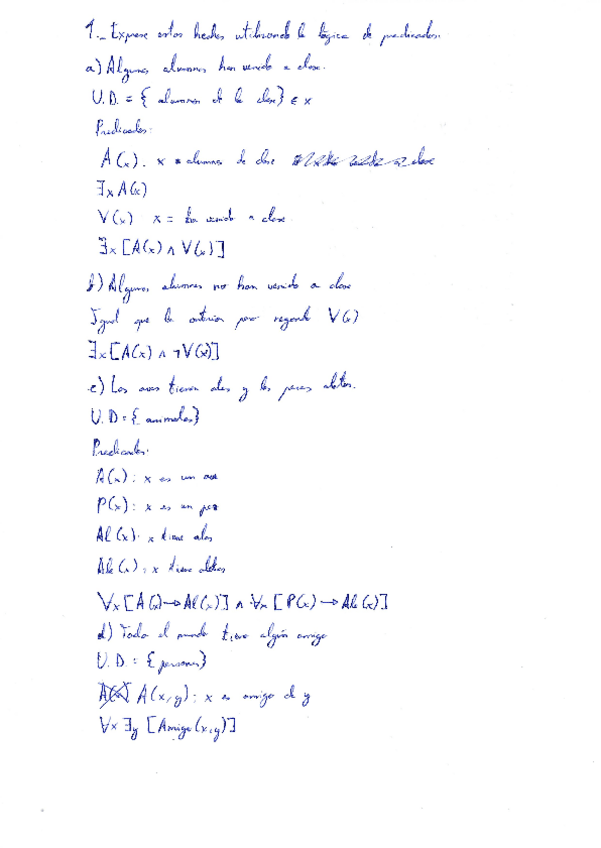 1._ Exprese estos hechos utilizando la lógica de predicados.
a) Algunos alumnos han venido a clase.
U.D. = { alumnos de la clase } ∈ x
Predicados:
A(x). x = alumnos de clase clase
∃x A(x)
V(x) x = ha venido a clase.
∃x [A(x) ∧ V(x)]
b) Algunos alumnos no han venido a clase
Igual que la anterior pero negando V(x)
∃x [A(x) ∧ ¬V(x)]
c) Las aves tienen alas y los peces aletas.
U.D = { animales }
Predicados:
A(x): x es un ave
P(x): x es un pez
Al(x): x tiene alas
Ale(x): x tiene aletas
∀x [A(x) → Al(x)] ∧ ∀x [P(x) → Ale(x)]
d) Todo el mundo tiene algún amigo
U.D. = { personas }
A(x, y): x es amigo de y
∀x ∃y [Amigo(x,y)]